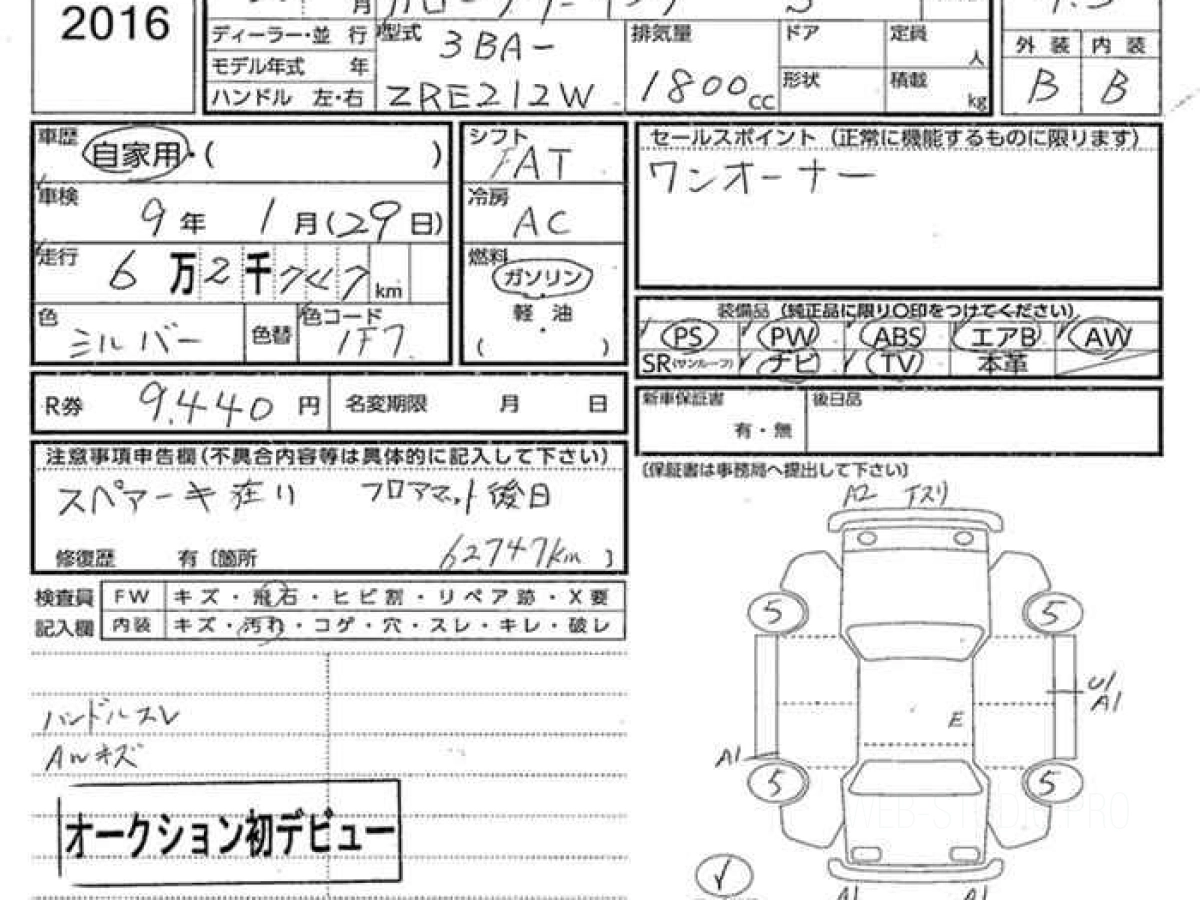 2016
月 カローラツーリング S
ディーラー・並 行 型式 3BA- 排気量 ドア 定員 人 外 装 内 装
モデル年式 年
ハンドル 左・右 ZRE212W 1800cc 形状 積載 kg B B
車歴 自家用・( ) シフト FAT セールスポイント (正常に機能するものに限ります)
ワンオーナー
車検 9年 1月(29日) 冷房 AC
走行 6万2千747km 燃料 ガソリン
・
軽 油
・
( )
色 シルバー 色替 色コード 1F7
装備品 (純正品に限り○印をつけてください)
PS PW ABS エアB AW
SR(サンルーフ) ナビ TV 本革
R券 9,440円 名変期限 月 日
新車保証書 有・無 後日品
(保証書は事務局へ提出して下さい)
注意事項申告欄(不具合内容等は具体的に記入して下さい)
スペアーキ在り フロアマット後日
修復歴 有〔箇所 62747km 〕
検査員 FW キズ・飛石・ヒビ割・リペア跡・X要
記入欄 内装 キズ・汚れ・コゲ・穴・スレ・キレ・破レ
ハンドルスレ
AWキズ
オークション初デビュー
A2 下スリ
5 5
U1
A1
E
A1
5 5
WEB-STUDIO.PRO
A1 A1